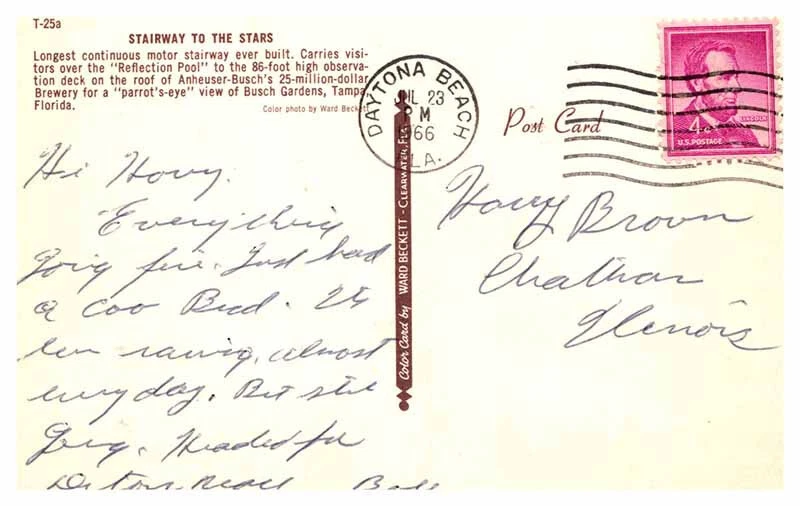 T-25a
STAIRWAY TO THE STARS
Longest continuous motor stairway ever built. Carries visi-
tors over the "Reflection Pool" to the 86-foot high observa-
tion deck on the roof of Anheuser-Busch's 25-million-dollar
Brewery for a "parrot's-eye" view of Busch Gardens, Tampa,
Florida.
Color photo by Ward Beckett
DAYTONA BEACH
JUL 23
PM
1966
FLA.
Post Card
LINCOLN
4¢
U.S. POSTAGE
Color Card by WARD BECKETT - CLEARWATER, FLA.
Hi Harry.
Everything
going fine. Just had
a coo Bud. Its
ben raining, almost
everyday. But still
going. Headed for
Datona Beach Bob
Harry Brown
Chatham
Ilenois